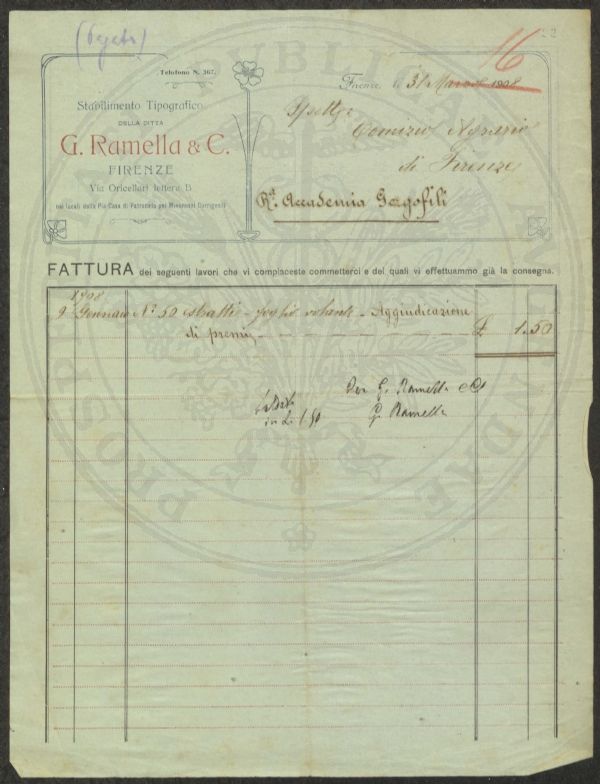 16
22
Telefono N. 367.
Firenze, li 31 Marzo 1908
Stabilimento Tipografico
DELLA DITTA
G. Ramella & C.
FIRENZE
Via Oricellari lettera B
nei locali della Pia Casa di Patronato pei Minorenni Corrigendi
Spett.
Comizio Agrario
di Firenze
Rª. Accademia Gergofili
FATTURA dei seguenti lavori che vi compiaceste commetterci e dei quali vi effettuammo già la consegna.
1908
9 Gennaio Nº 50 estratti - foglio volante - Aggiudicazione
di premi £ 1.50
Per G. Ramella e C
G. Ramella
in L. 1 50
PUBLICAE
PROSPERITATI